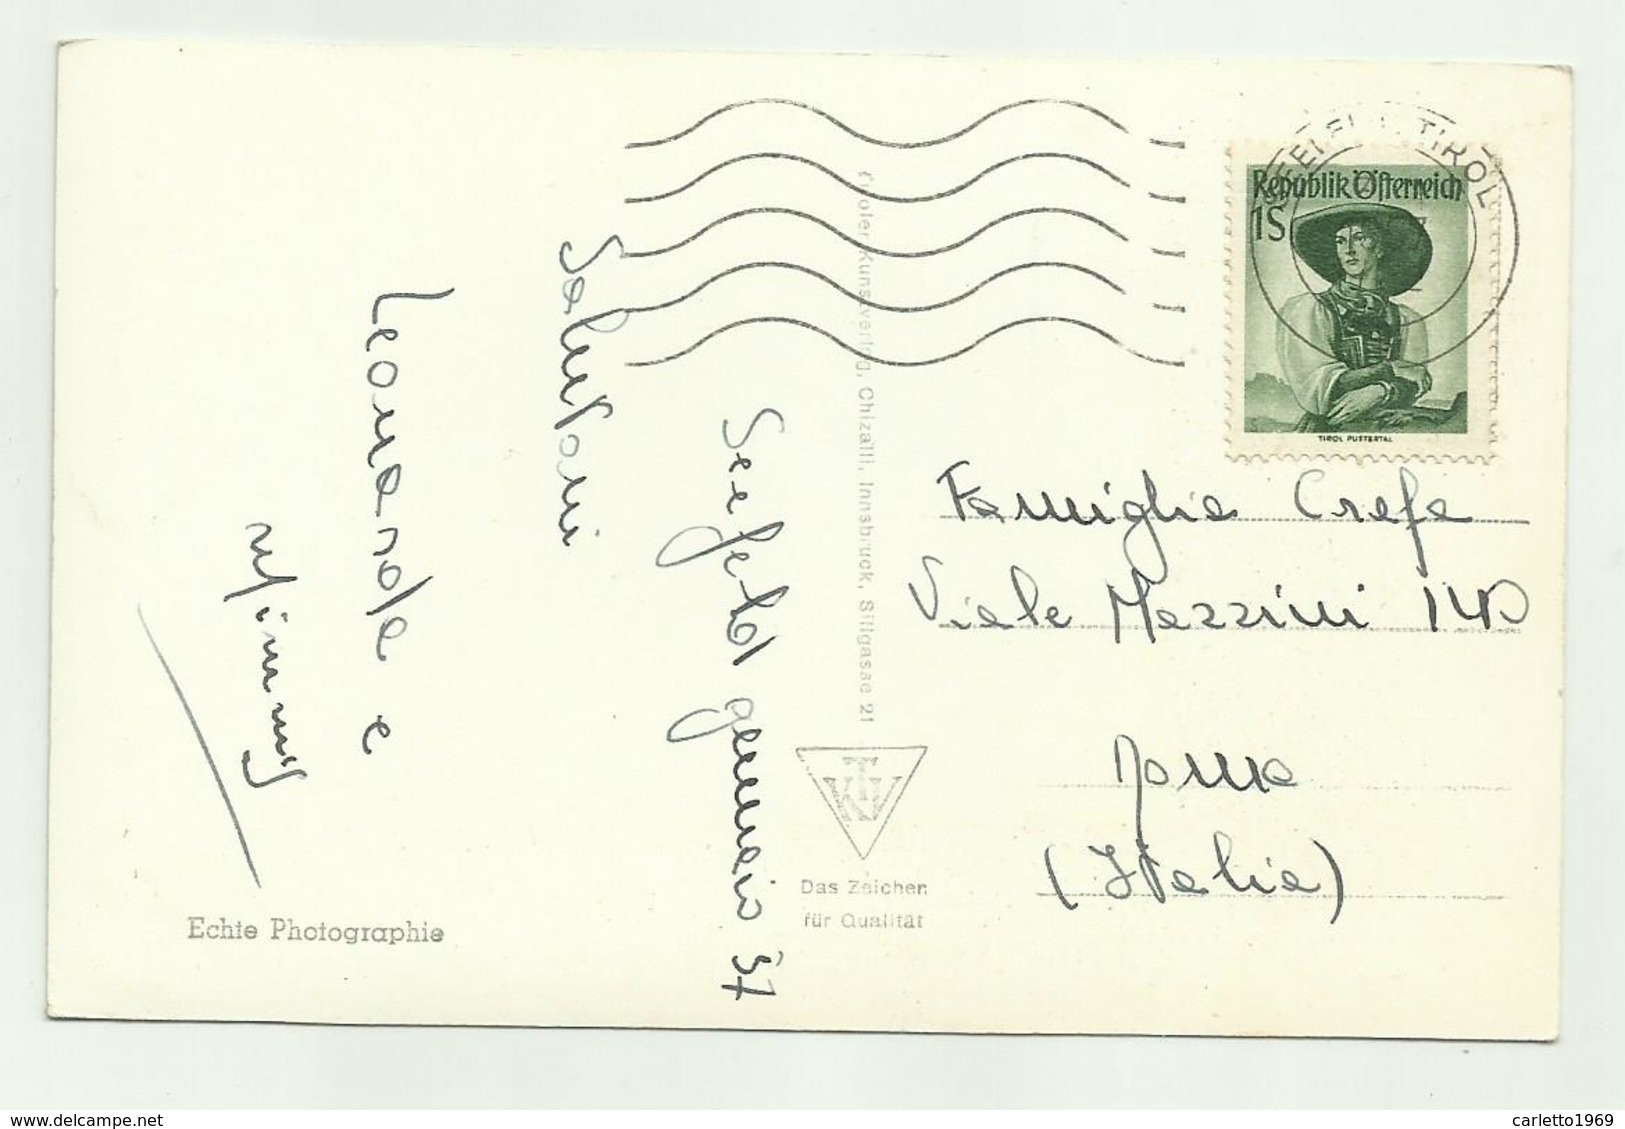 Seefeld gennaio 57
Salutoni
Leonarda e
Mimmy
Echte Photographie
Tiroler Kunstverlag, Chizzali, Innsbruck, Sillgasse 21
TKV
Das Zeichen
für Qualität
TIROL
Republik Österreich
1S
TIROL PUSTERTAL
Famiglia Crefa
Viale Mazzini 140
Roma
(Italia)
www.delcampe.net
carletto1969